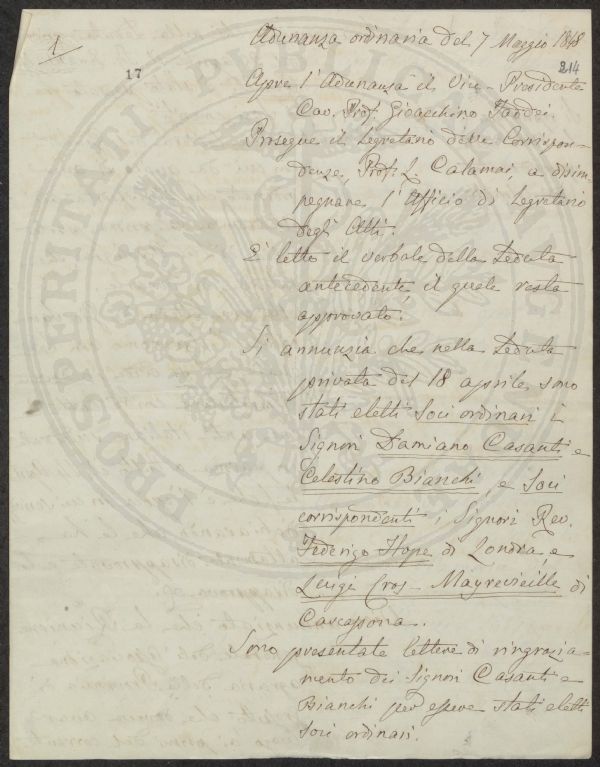 1
17
214
Adunanza ordinaria del 7 Maggio 1848
Apre l'Adunanza il Vice-Presidente
Cav. Prof. Gioacchino Taddei.
Prosegue il Segretario delle Corrispon-
denze, Prof. L. Calamai, a disim-
pegnare l'Afficio di Segretario
degli Atti.
È letto il verbale della Seduta
antecedente, il quale resta
approvato.
Si annunzia che nella Seduta
privata del 18 aprile sono
stati eletti Soci ordinari i
Signori Damiano Casanti e
Celestino Bianchi, e Soci
corrispondenti i Signori Rev.
Federigo Hope di Londra, e
Luigi Cros-Mayrevieille di
Carcassona.
Sono presentate lettere di ringrazia-
mento dei Signori Casanti e
Bianchi per essere stati eletti
Soci ordinari.
PROSPERITATI PUBLICAE